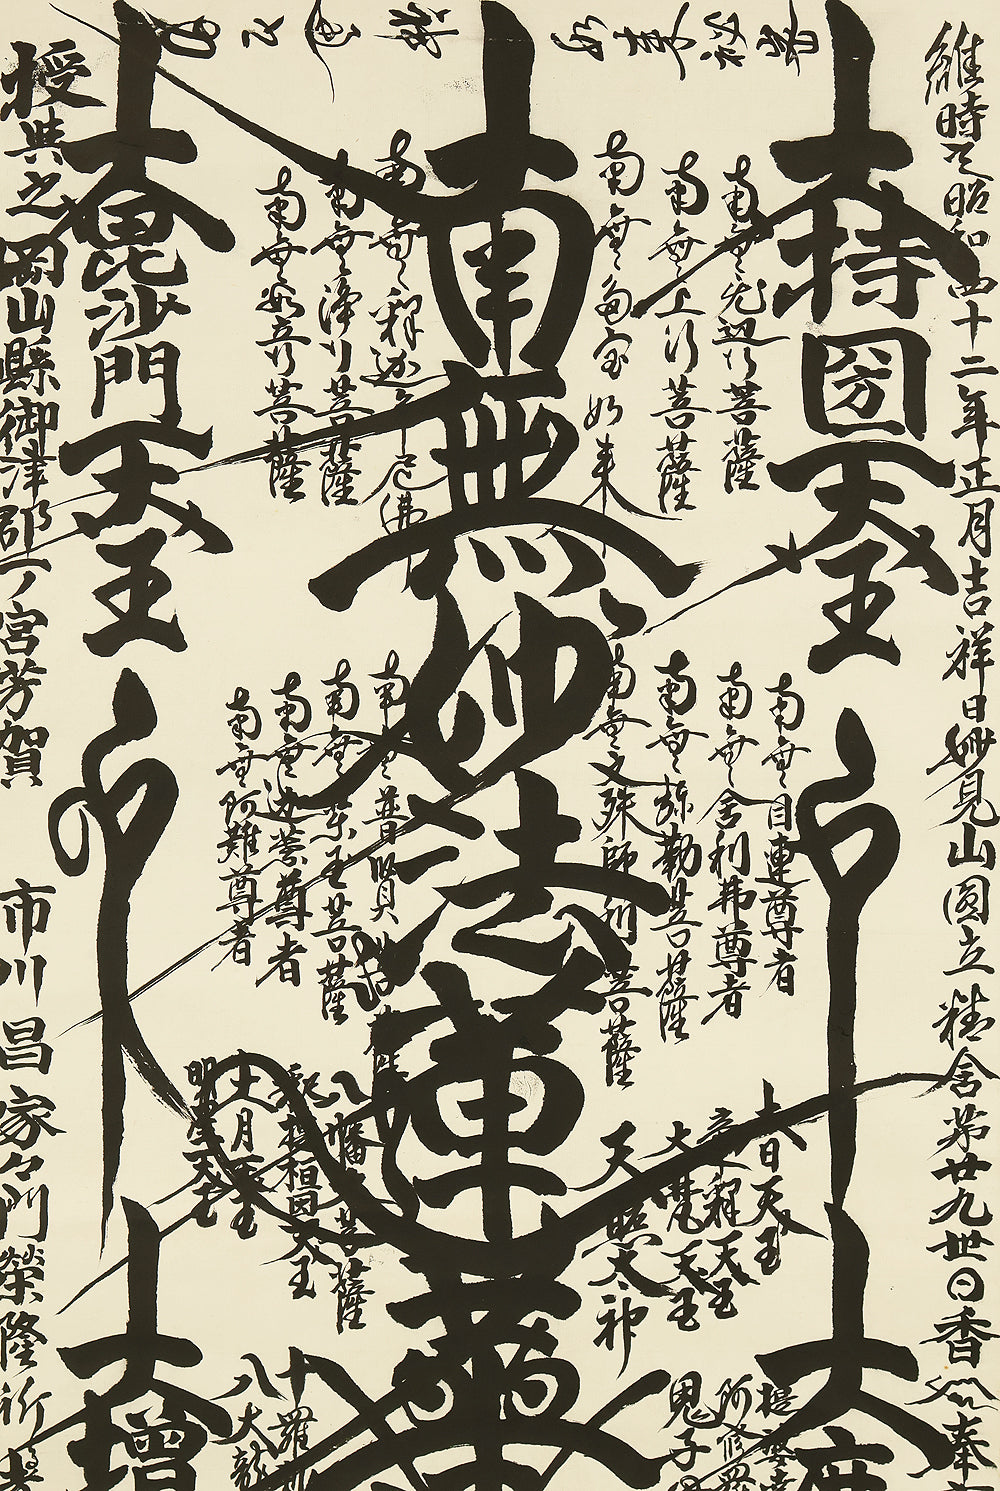 維時昭和四十二年正月吉祥日妙見山圓立精舍第廿九世日香
大持国天王
大
南無無辺行菩薩
南無上行菩薩
南無多宝如来
南無妙法蓮華
南無釋迦牟尼佛
南無浄行菩薩
南無安立行菩薩
大毘沙門天王
南無目連尊者
南無舎利弗尊者
南無弥勒菩薩
南無文殊師利菩薩
南無普賢菩薩
南無薬王菩薩
南無迦葉尊者
南無阿難尊者
大日天王
帝釋天王
大梵天王
天照大神
八幡大菩薩
釋提桓因大王
大月天王
明星天王
鬼子
十羅
八大龍
大増
授与之 岡山縣御津郡一ノ宮芳賀 市川昌 家々門榮隆祈